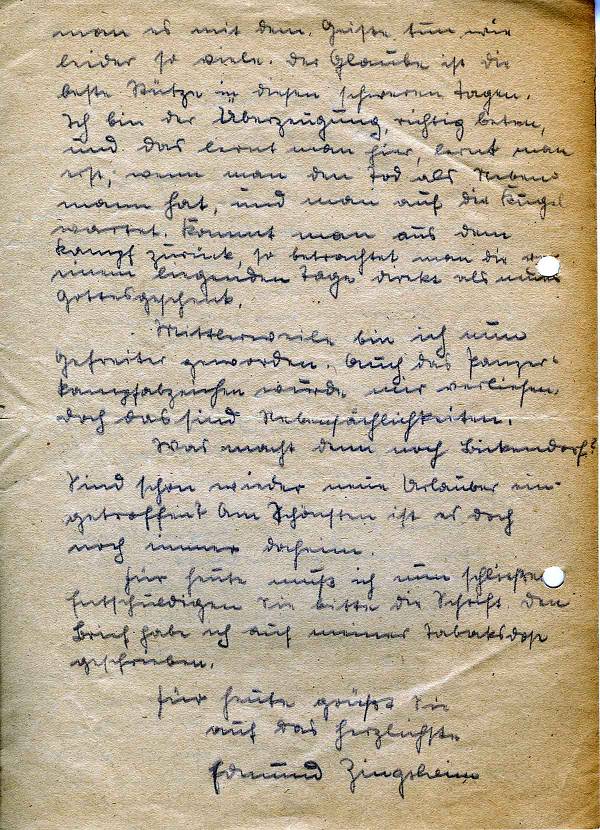 man es mit dem Geiste tun, wie
leider so viele. Der Glaube ist die
beste Stütze in diesen schweren Tagen.
Ich bin der Überzeugung, richtig beten,
und das lernt man hier, lernt man
erst, wenn man den Tod als Neben
mann hat, und man auf die Kugel
wartet. Kommt man aus dem
Kampf zurück, so betrachtet man die
einem liegenden Tage direkt als neues
Gottesgeschenk.
Mittlerweile bin ich nun
Gefreiter geworden. Auch das Panzer-
kampfabzeichen wurde mir verliehen.
Doch das sind Nebensächlichkeiten.
Was macht denn noch Bickendorf?
Sind schon wieder neue Urlauber ein-
getroffen? Am Schönsten ist es doch
noch immer daheim.
Für heute muß ich nun schließen
Entschuldigen Sie bitte die Schrift. Den
Brief habe ich auf meiner Tabaksdose
geschrieben.
Für heute grüßt Sie
auf das herzlichste
Edmund Zingsheim